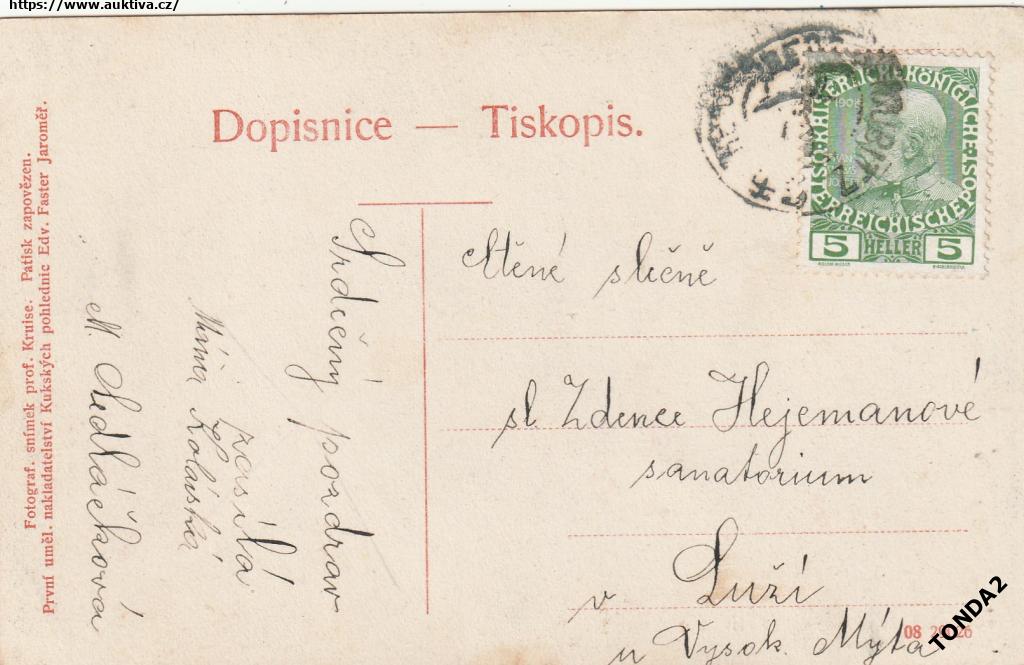 https://www.auktiva.cz/
Dopisnice — Tiskopis.
ÖSTERREICHISCHE
5 HELLER 5
1908
Ctěné slečně
sl. Zdence Hejemanové
sanatorium
v Luži
u Vysok. Mýta
Srdečný pozdrav
zasílá
Máňa Kolaiská
M. Sedláčková
Fotograf. snímek prof. Kruise. Patisk zapovězen.
První uměl. nakladatelství Kukských pohlednic Edv. Faster Jaroměř.
08
TONDA2